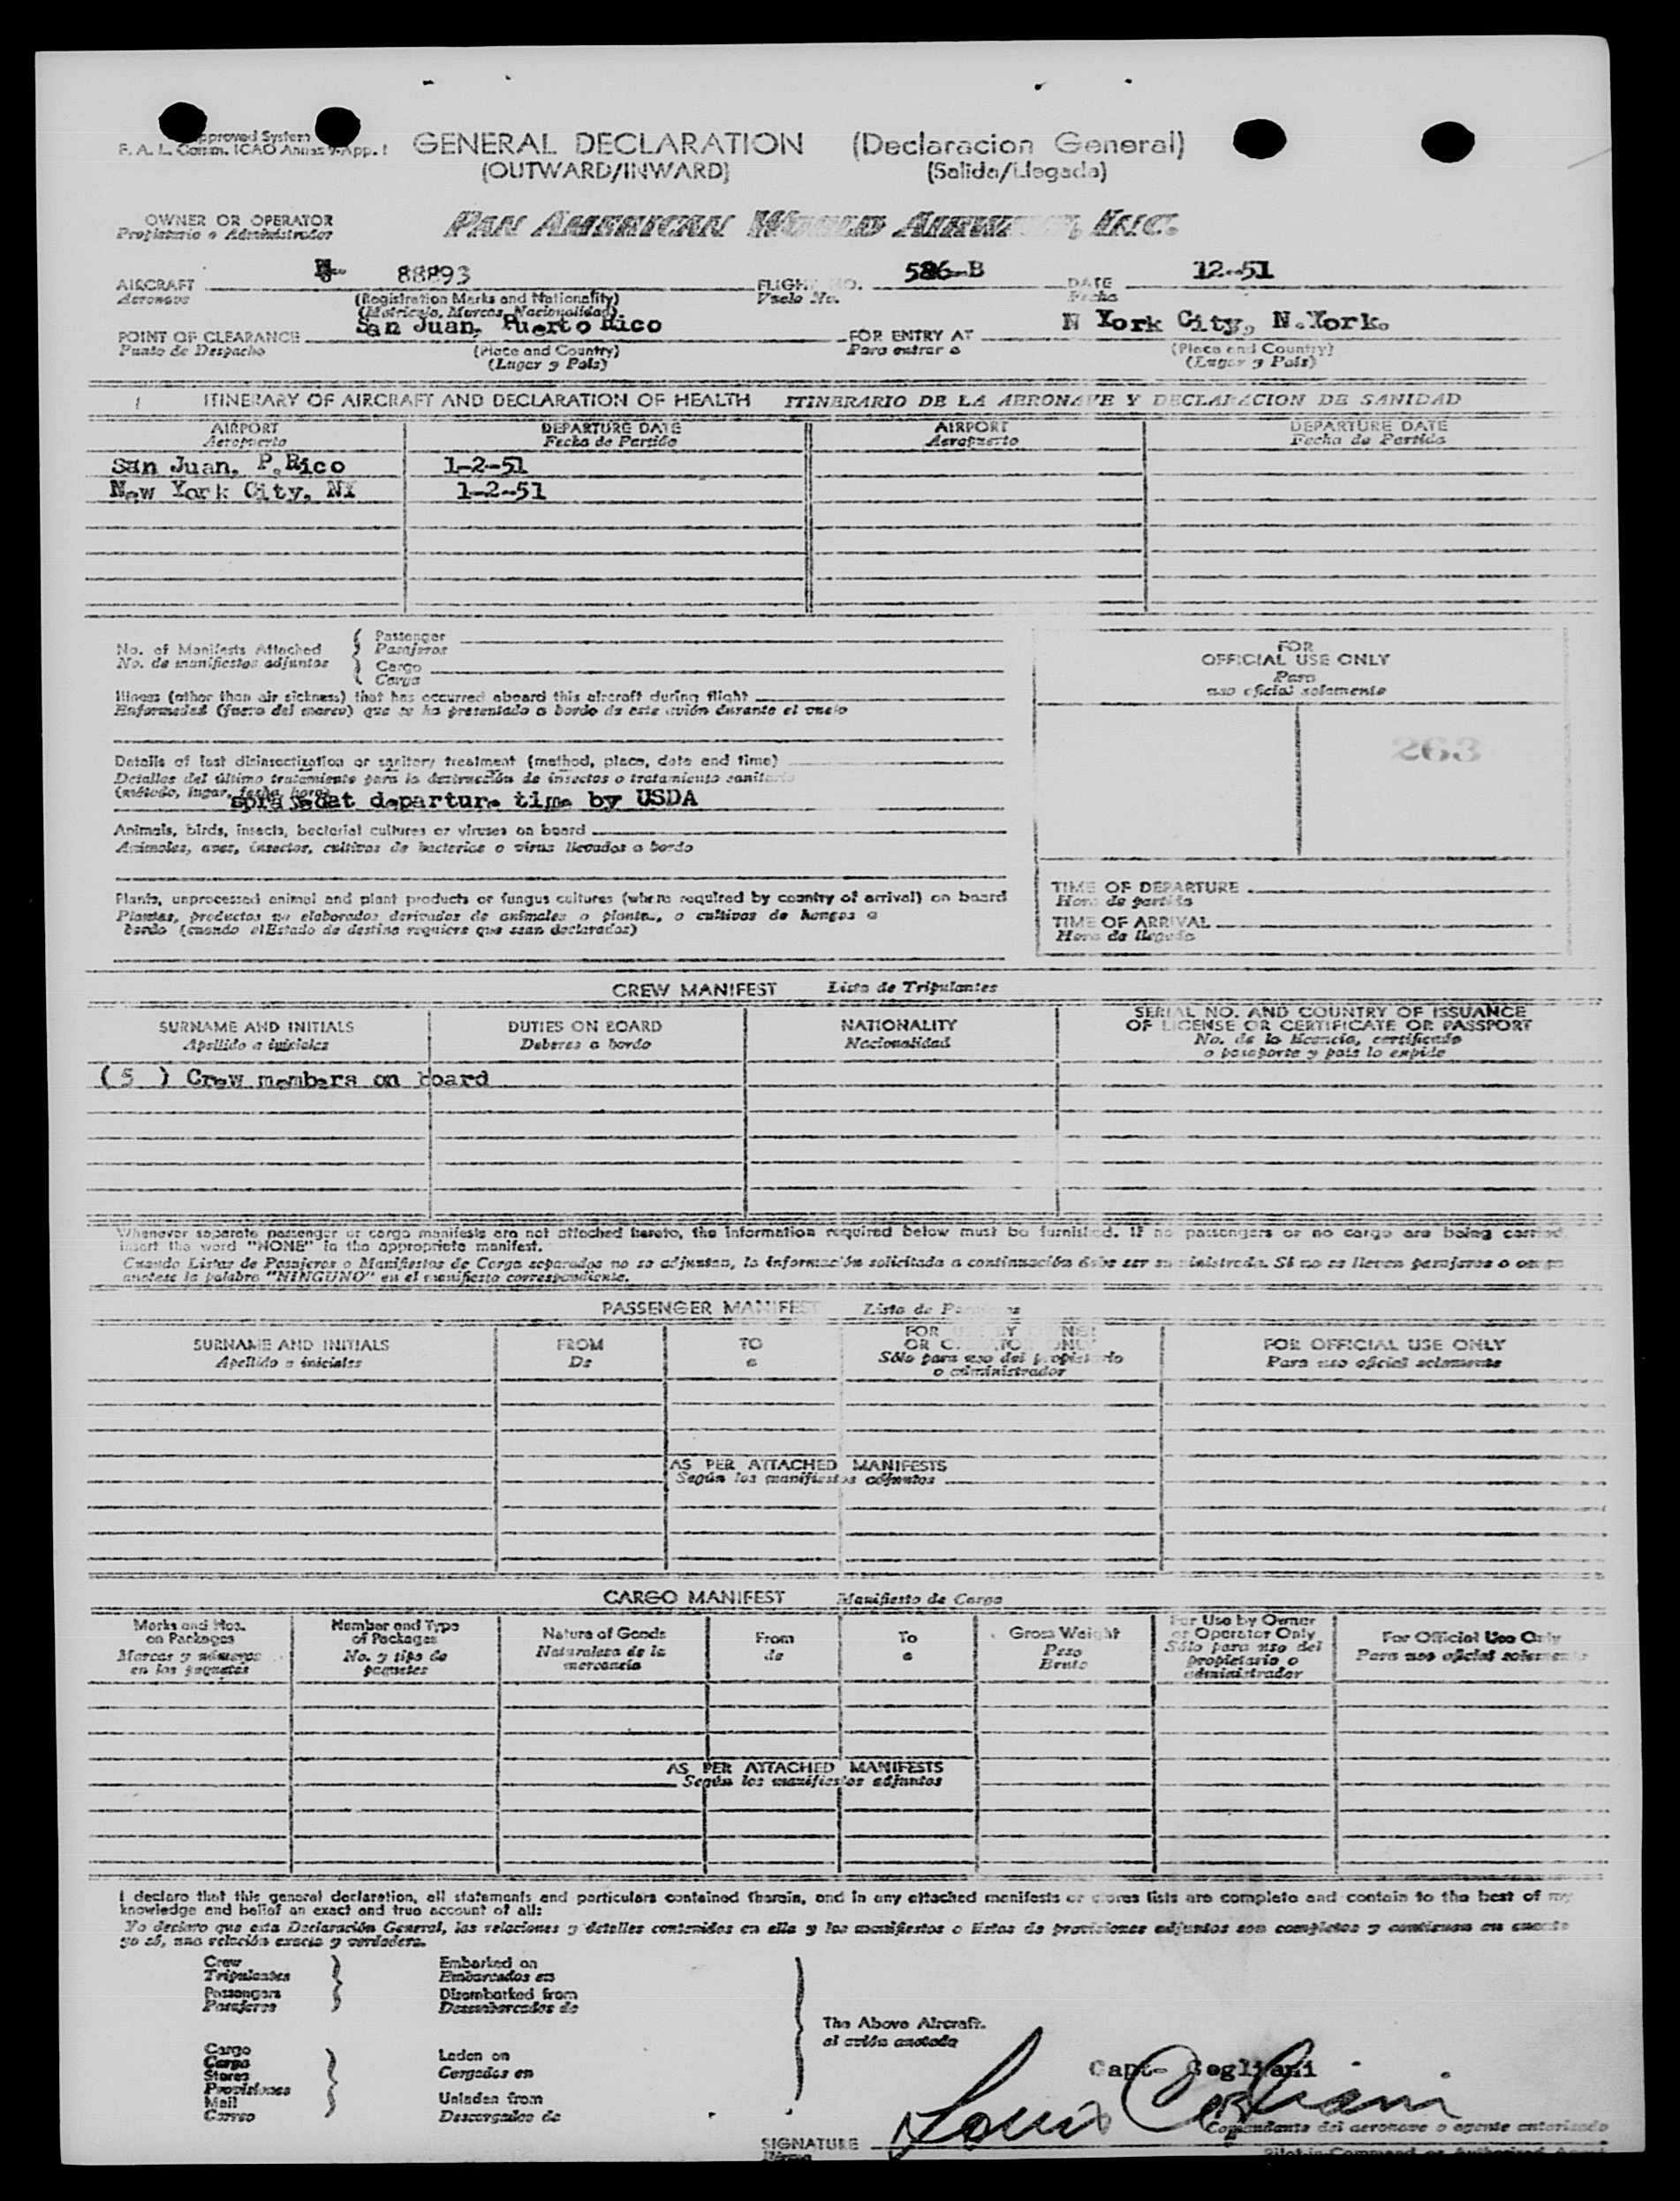 Approved System
F. A. L. Comm. ICAO Annex 9-App. 1
GENERAL DECLARATION (Declaracion General)
(OUTWARD/INWARD) (Salida/Llegada)
OWNER OR OPERATOR
Propietario o Administrador
PAN AMERICAN WORLD AIRWAYS, INC.
AIRCRAFT N- 88893 FLIGHT NO. 586-B DATE 12-51
Aeronave (Registration Marks and Nationality) Vuelo No. Fecha
(Matricula, Marcas, Nacionalidad)
POINT OF CLEARANCE San Juan, Puerto Rico FOR ENTRY AT N York City, N.York.
Punto de Despacho (Place and Country) Para entrar a (Place and Country)
(Lugar y País) (Lugar y País)
ITINERARY OF AIRCRAFT AND DECLARATION OF HEALTH ITINERARIO DE LA AERONAVE Y DECLARACION DE SANIDAD
AIRPORT DEPARTURE DATE AIRPORT DEPARTURE DATE
Aeropuerto Fecha de Partida Aeropuerto Fecha de Partida
San Juan, P.Rico 1-2-51
New York City, NY 1-2-51
No. of Manifests Attached
No. de manifiestos adjuntos
Passenger
Pasajeros
Cargo
Carga
FOR
OFFICIAL USE ONLY
Para
uso oficial solamente
263
Illness (other than air sickness) that has occurred aboard this aircraft during flight
Enfermedad (fuera del mareo) que se ha presentado a bordo de este avión durante el vuelo
Details of last disinsectization or sanitary treatment (method, place, date and time)
Detalles del último tratamiento para la destrucción de insectos o tratamiento sanitario
(método, lugar, fecha, hora)
sprayedat departure time by USDA
Animals, birds, insects, bacterial cultures or viruses on board
Animales, aves, insectos, cultivos de bacterias o virus llevados a bordo
Plants, unprocessed animal and plant products or fungus cultures (where required by country of arrival) on board
Plantas, productos no elaborados derivados de animales o plantas, o cultivos de hongos a
bordo (cuando el Estado de destino requiere que sean declarados)
TIME OF DEPARTURE
Hora de partida
TIME OF ARRIVAL
Hora de llegada
CREW MANIFEST Lista de Tripulantes
SURNAME AND INITIALS DUTIES ON BOARD NATIONALITY SERIAL NO. AND COUNTRY OF ISSUANCE
OF LICENSE OR CERTIFICATE OR PASSPORT
Apellido e iniciales Deberes a bordo Nacionalidad No. de la licencia, certificado
o pasaporte y país lo expide
( 5 ) Crew members on board
Whenever separate passenger or cargo manifests are not attached hereto, the information required below must be furnished. If no passengers or no cargo are being carried,
insert the word "NONE" in the appropriate manifest.
Cuando Listas de Pasajeros o Manifiestos de Carga separados no se adjuntan, la información solicitada a continuación debe ser suministrada. Si no se llevan pasajeros o carga
anotese la palabra "NINGUNO" en el manifiesto correspondiente.
PASSENGER MANIFEST Lista de Pasajeros
SURNAME AND INITIALS FROM TO FOR USE BY OWNER
OR OPERATOR ONLY FOR OFFICIAL USE ONLY
Apellido e iniciales De a Sólo para uso del propietario
o administrador Para uso oficial solamente
AS PER ATTACHED MANIFESTS
Según los manifiestos adjuntos
CARGO MANIFEST Manifiesto de Carga
Marks and Nos.
on Packages
Marcas y números
en los paquetes
Number and Type
of Packages
No. y tipo de
paquetes
Nature of Goods
Naturaleza de la
mercancía
From
de
To
a
Gross Weight
Peso
Bruto
For Use by Owner
or Operator Only
Sólo para uso del
propietario o
administrador
For Official Use Only
Para uso oficial solamente
AS PER ATTACHED MANIFESTS
Según los manifiestos adjuntos
I declare that this general declaration, all statements and particulars contained therein, and in any attached manifests or stores lists are complete and contain to the best of my
knowledge and belief an exact and true account of all:
Yo declaro que esta Declaración General, las relaciones y detalles contenidos en ella y los manifiestos o listas de provisiones adjuntos son completos y contienen en cuanto
yo sé, una relación exacta y verdadera.
Crew
Tripulantes
Passengers
Pasajeros
Embarked on
Embarcados en
Disembarked from
Desembarcados de
Cargo
Carga
Stores
Provisiones
Mail
Correo
Laden on
Cargados en
Unladen from
Descargados de
The Above Aircraft.
al avión anotado
Capt- Cogliani
Louis Cogliani
Comandante del aeronave o agente autorizado
SIGNATURE
Firma
Pilot-in-Command or Authorized Agent